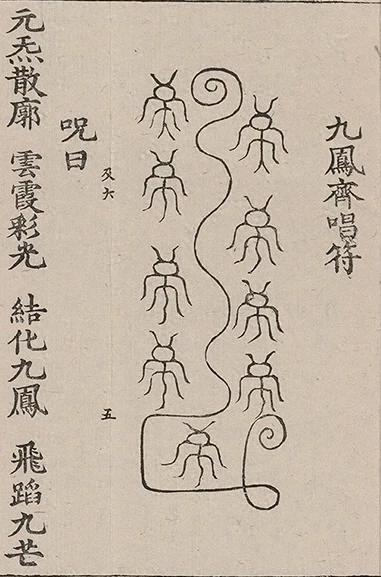 九鳳齊唱符
六
五
呪曰
元炁散廓 雲霞彩光 結化九鳳 飛蹈九芒